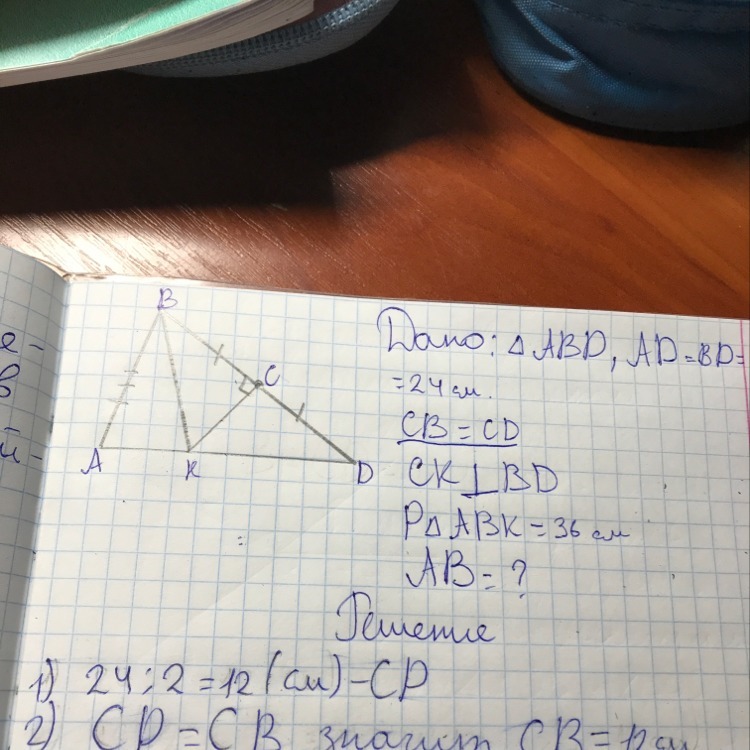 е-
в
й-
B
C
A
K
D
Дано: △ABD, AD=BD=
=24 см.
CB = CD
CK⊥BD
P△ABK=36 см
AB=?
Решение
1) 24:2=12(см)-CD
2) CD=CB значит CB=12см